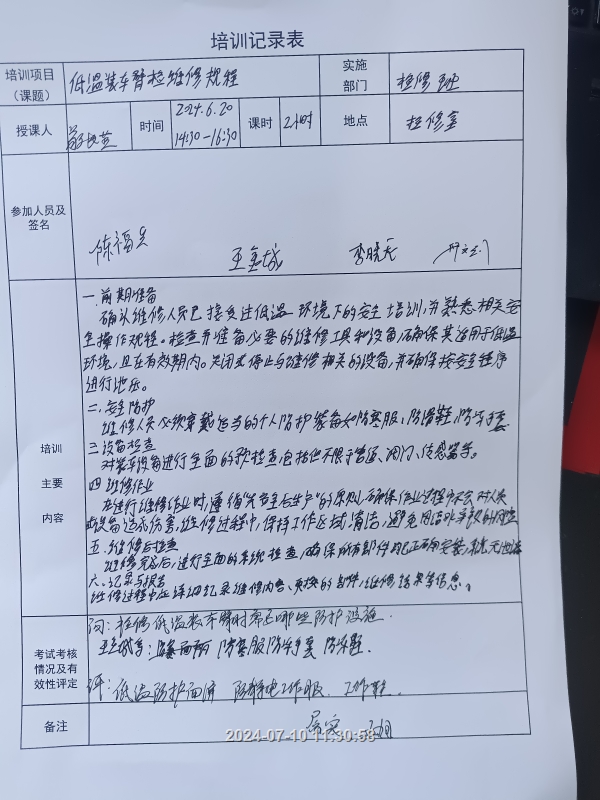 培训记录表
培训项目（课题） 低温装车臂检维修规程 实施部门 检修班
授课人 时间 2024.6.20 14:30-16:30 课时 2小时 地点 检修室
参加人员及签名
陈福 王金城 李晓天
培训主要内容
一.前期准备
确认维修人员已接受过低温环境下的安全培训,并熟悉相关安
全操作规程。检查并准备必要的维修工具和设备,确保其适用于低温
环境,且在有效期内。关闭或停止与维修相关的设备,并确保按安全程序
进行
二.安全防护
维修人员必须穿戴适当的个人防护装备如防寒服,防滑鞋,防冻手套
三设备检查
对装车设备进行全面的预检查包括但不限于管道、阀门、传感器等。
四 维修作业
在进行维修作业时,遵循"先安全后生产"的原则,确保作业过程中不会对人员
或设备造成伤害,维修过程中,保持工作区域清洁,避免因结冰导致的
五.维修后检查
维修完后,进行全面的系统检查,确保所有部件均已正确安装,系统无泄漏
六.记录与报告
维修过程中应详细记录维修内容、更换的部件,维修结果等信息。
考试考核情况及有效性评定
问:检修低温装车臂时需要哪些防护设施
王金城答: 防寒服 防冻手套
评:低温防护面屏 防静电工作服 工作鞋.
备注
2024-07-10 11:30:58